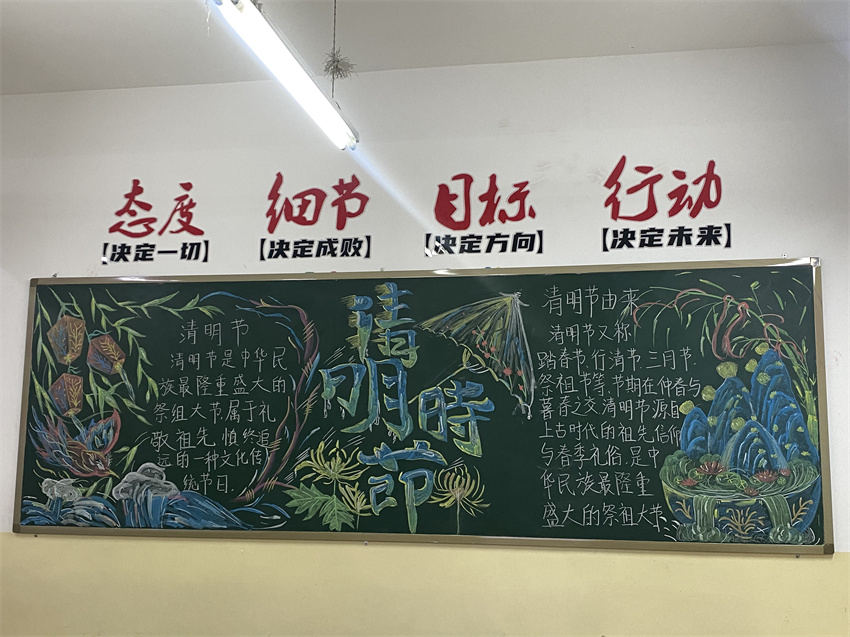 态度 细节 目标 行动
【决定一切】 【决定成败】 【决定方向】 【决定未来】
清明节
清明节是中华民
族最隆重盛大的
祭组大节属于礼
敬祖先,慎终追
远的一种文化传
统节日.
清明時节
清明节由来
清明节又称
踏春节.行清节.三月节.
祭祖节等.节期在仲春与
暮春之交.清明节源自
上古时代的祖先信仰
与春季礼俗.是中
华民族最隆重
盛大的祭祖大节